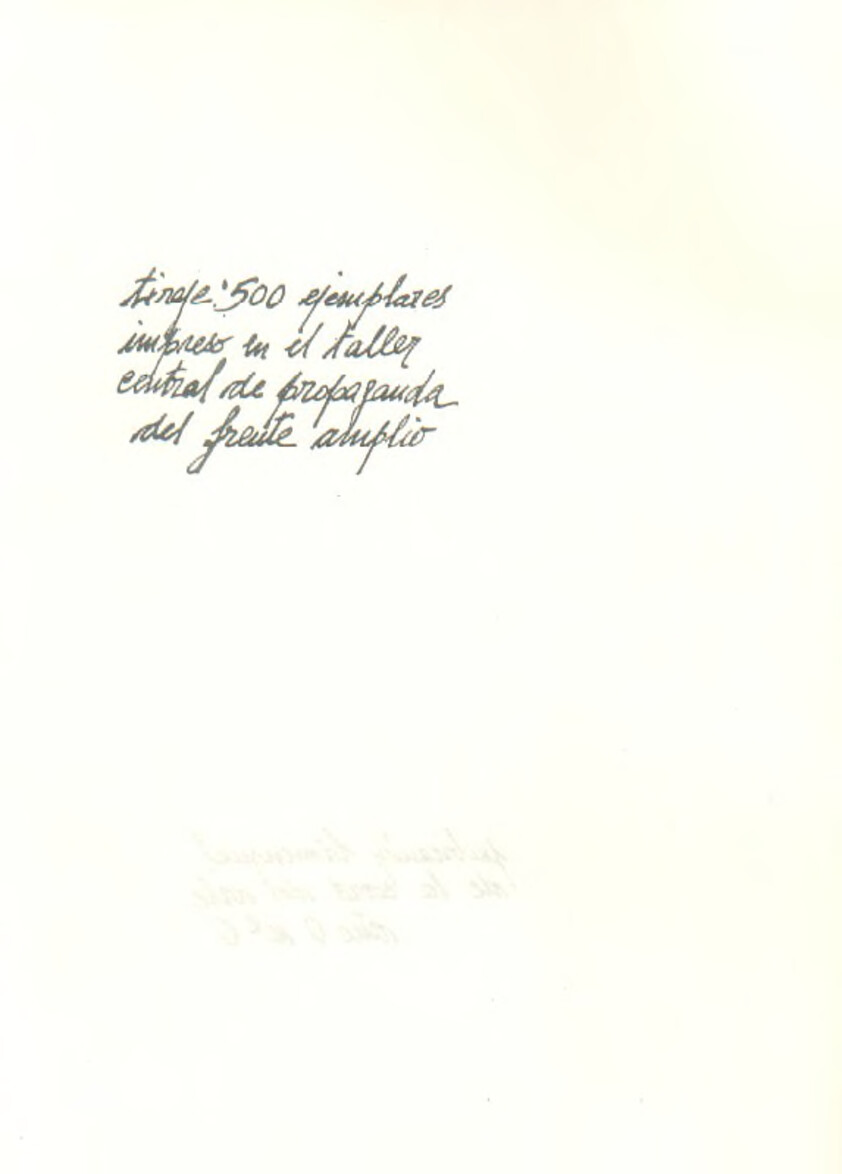 tiraje: 500 ejemplares
impreso en el taller
central de propaganda
del frente amplio
de la